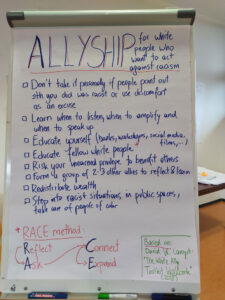 ALLYSHIP for white
people who
want to act
against racism
□ Don't take it personally if people point out
sth you did was racist or use discomfort
as an excuse
□ Learn when to listen, when to amplify and
when to speak up
□ Educate yourself (books, workshops, social media,
films, ...)
□ Educate fellow white people
□ Risk your unearned privilege to benefit others
□ Form a group of 2-3 other allies to reflect & learn
□ Redistribute wealth
□ Step into racist situations, in public spaces,
take care of people of color
* RACE method:
Reflect Connect
Ask Expand
Based on:
David
"The White Ally
Toolkit